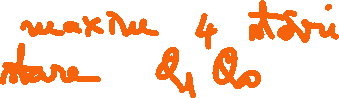 maxim 4 stări
stare Q1 Q0